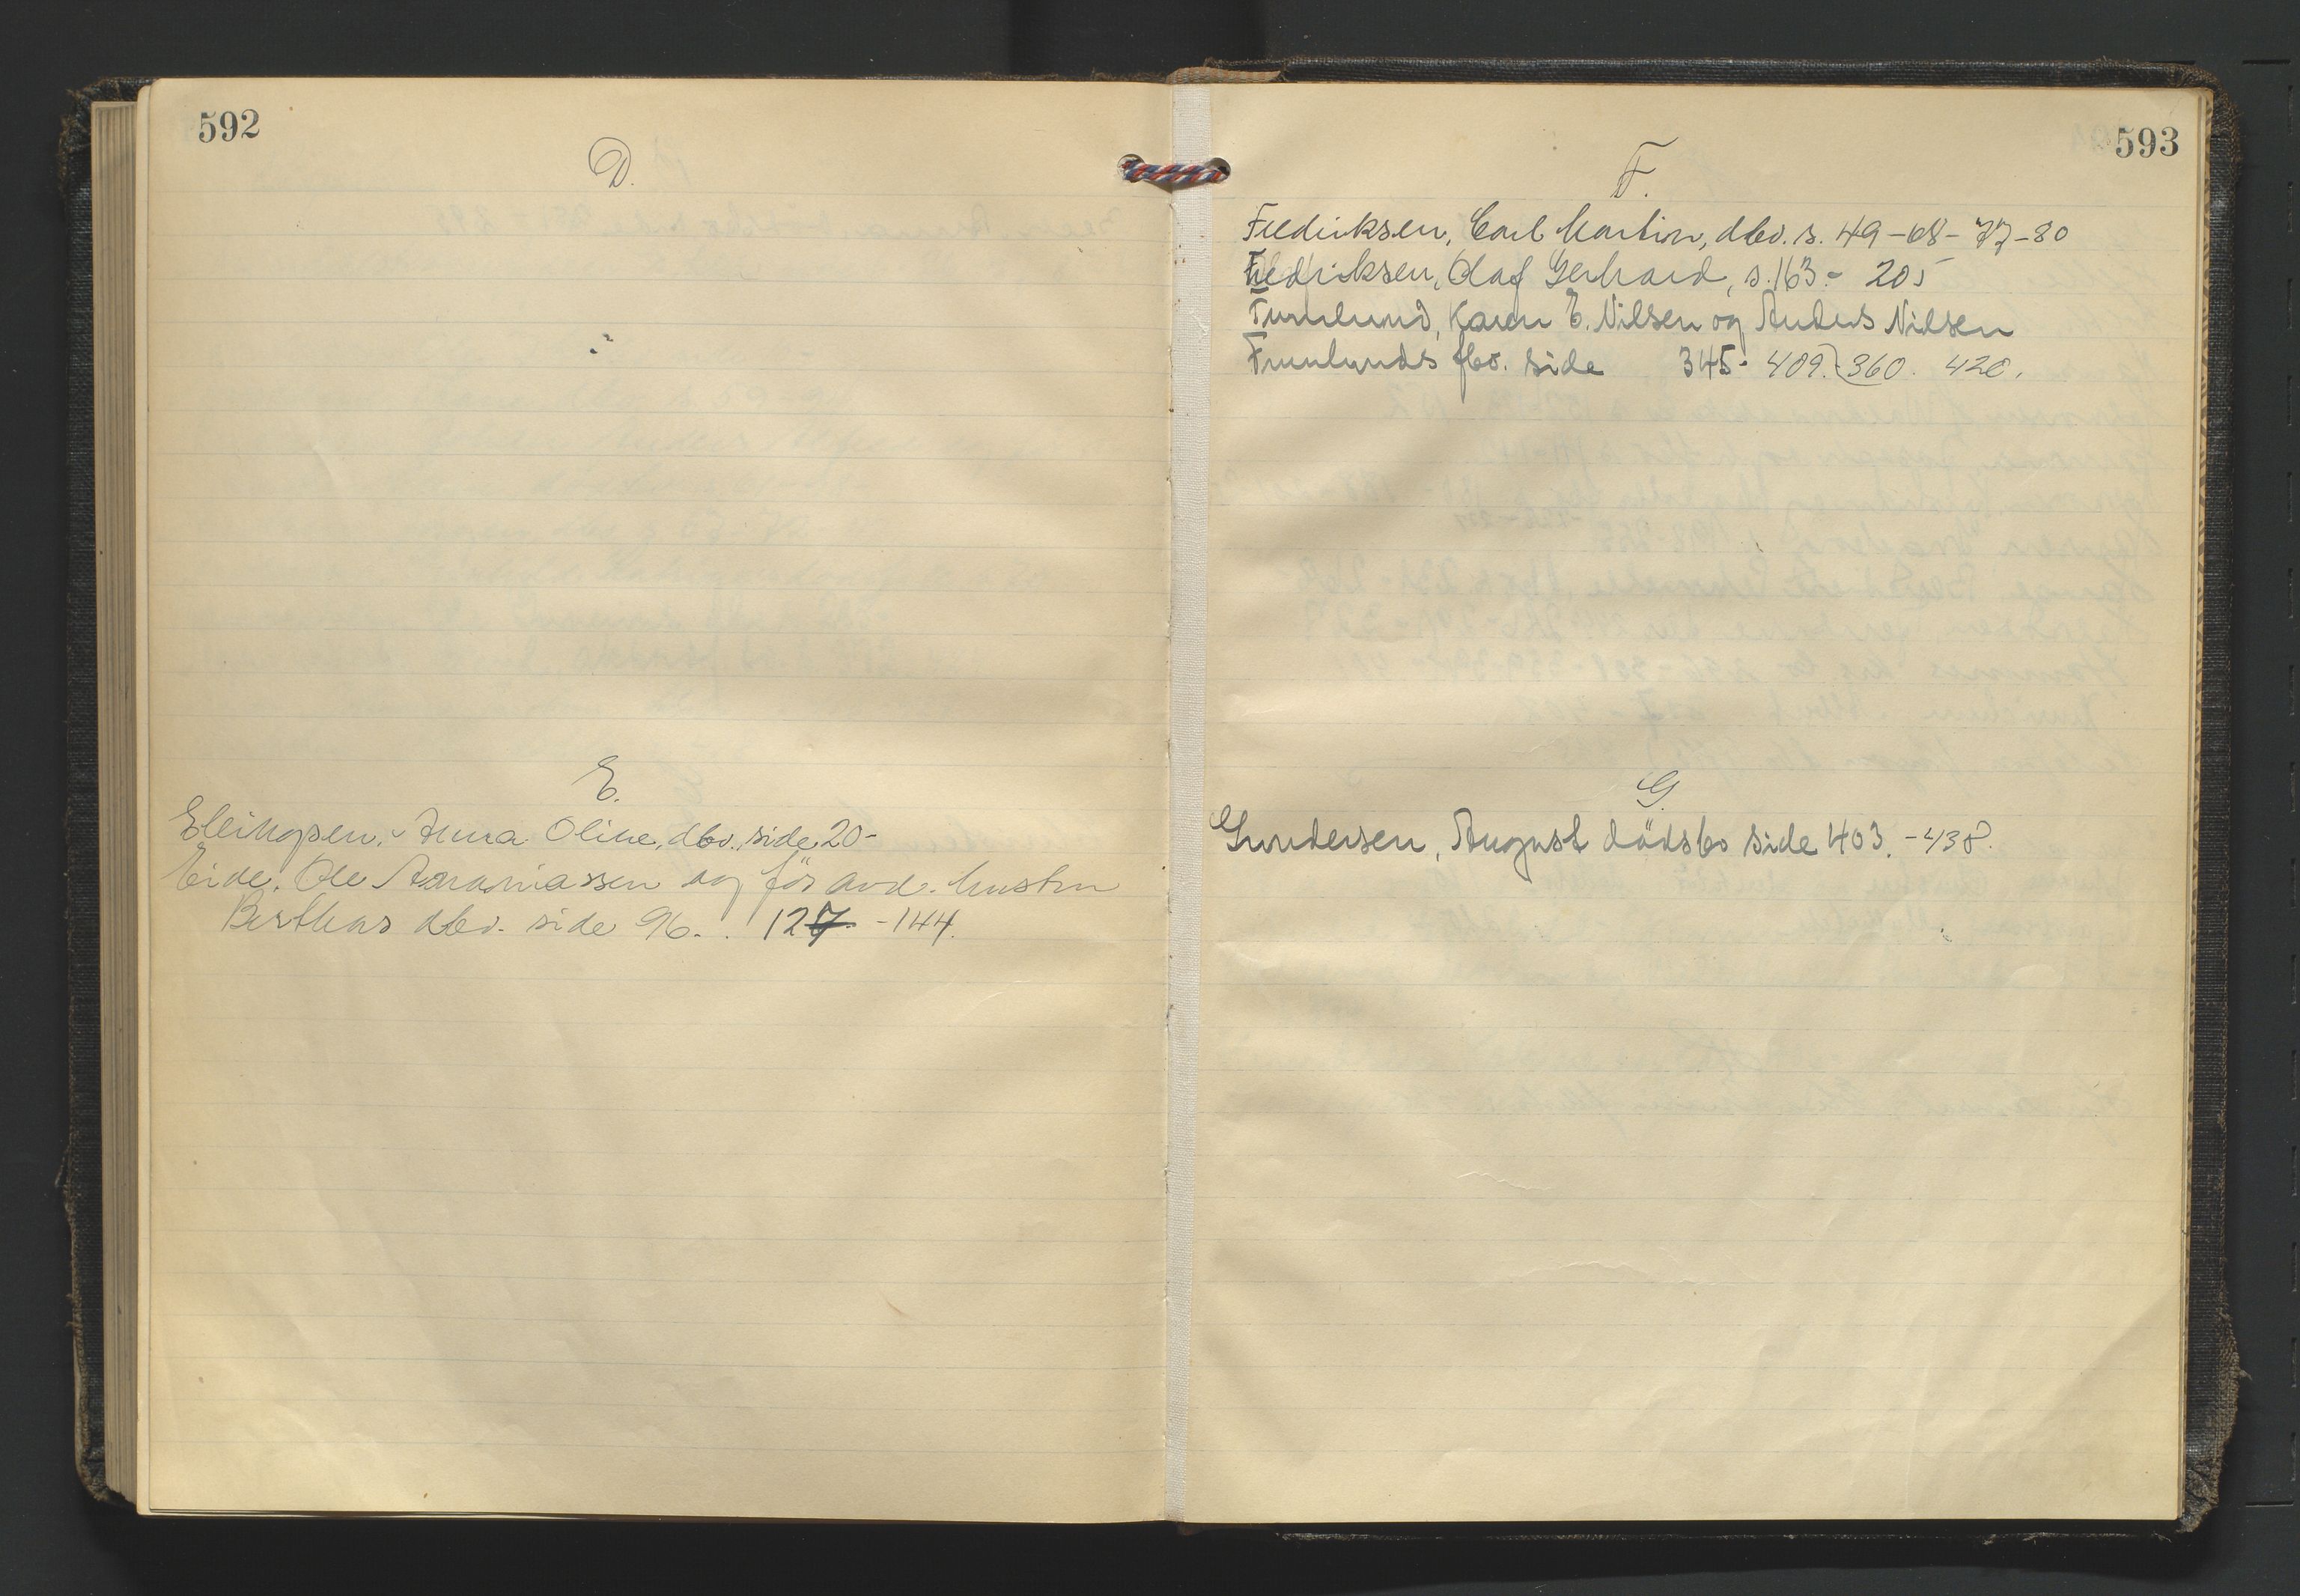 592
D.
E.
Ellingsen, Anna Oline, dbo. side 20-
Eide, Ole Ananiassen og før avd. hustru
Berthas dbo. side 96. . 127 -144.
593
F.
Fredriksen, Carl Martin, dbo. s. 49-68-77-80
Fredriksen, Olaf Gerhard, s. 163- 205
Furulund, Karen E. Nilsen og Anders Nilsen
Furulunds fbo. side 345- 409.-360. 420.
G.
Gundersen, August dödsbo side 403. -438.